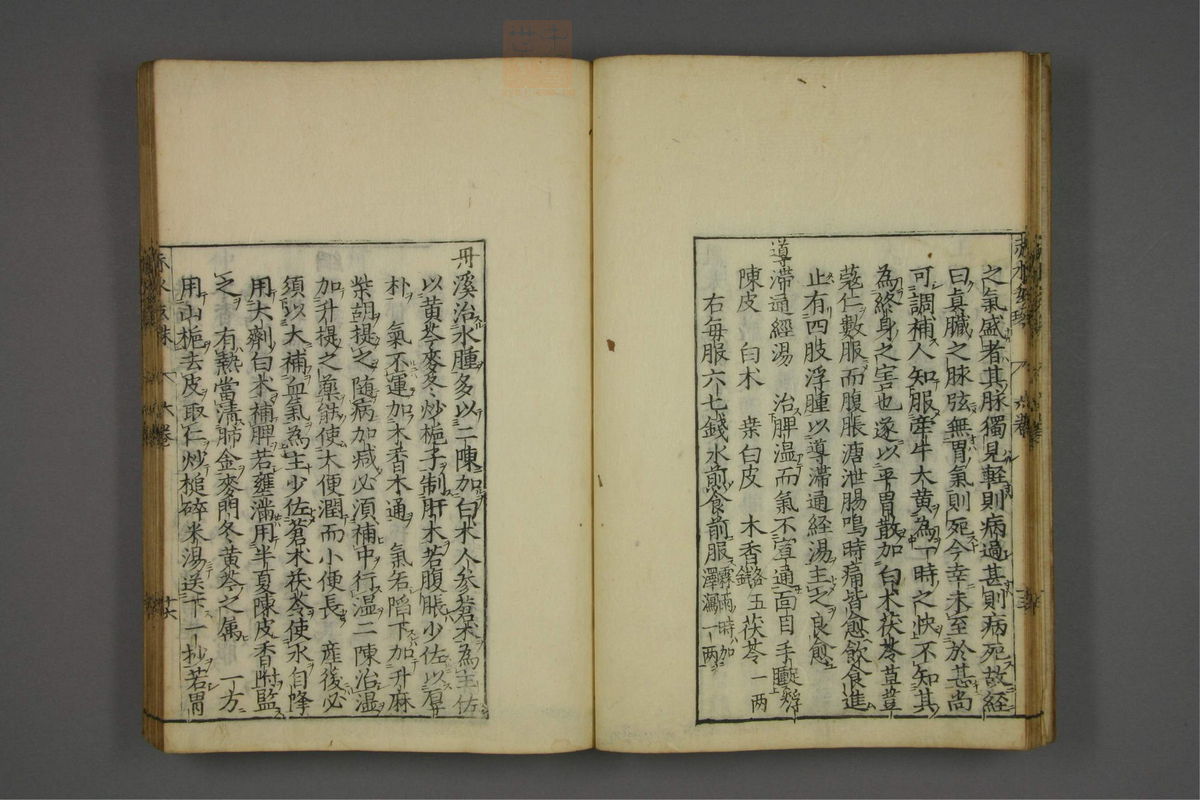 之氣盛者其脉獨見輕則病過甚則病死故經
曰真臟之脉弦無胃氣則死今幸未至於甚尚
可調補人知服牽牛大黃為一時之快不知其
為終身之害也遂以平胃散加白术茯苓草荳
蔻仁數服而腹脹溏泄腸鳴時痛皆愈飲食進
止有四肢浮腫以導滯通經湯主之良愈
導滯通經湯　治脾濕而氣不宣通面目手足
陳皮　白术　桑白皮　木香各五錢　茯苓一兩
右每服六七錢水煎食前服霖雨時加澤瀉一兩
丹溪治水腫多以二陳加白术人參蒼术為主佐
以黃芩麥冬炒梔子制肝木若腹脹少佐以厚
朴　氣不運加木香木通　氣若陷下加升麻
柴胡提之隨病加减必須補中行濕二陳治濕
加升提之藥能使大便潤而小便長　産後必
須以大補血氣為主少佐蒼术茯苓使水自降
用大劑白术補脾若壅滿用半夏陳皮香附監
之　有熱當清肺金麥門冬黃芩之属　一方
用山梔去皮取仁炒槌碎米湯送下一抄若胃
六卷